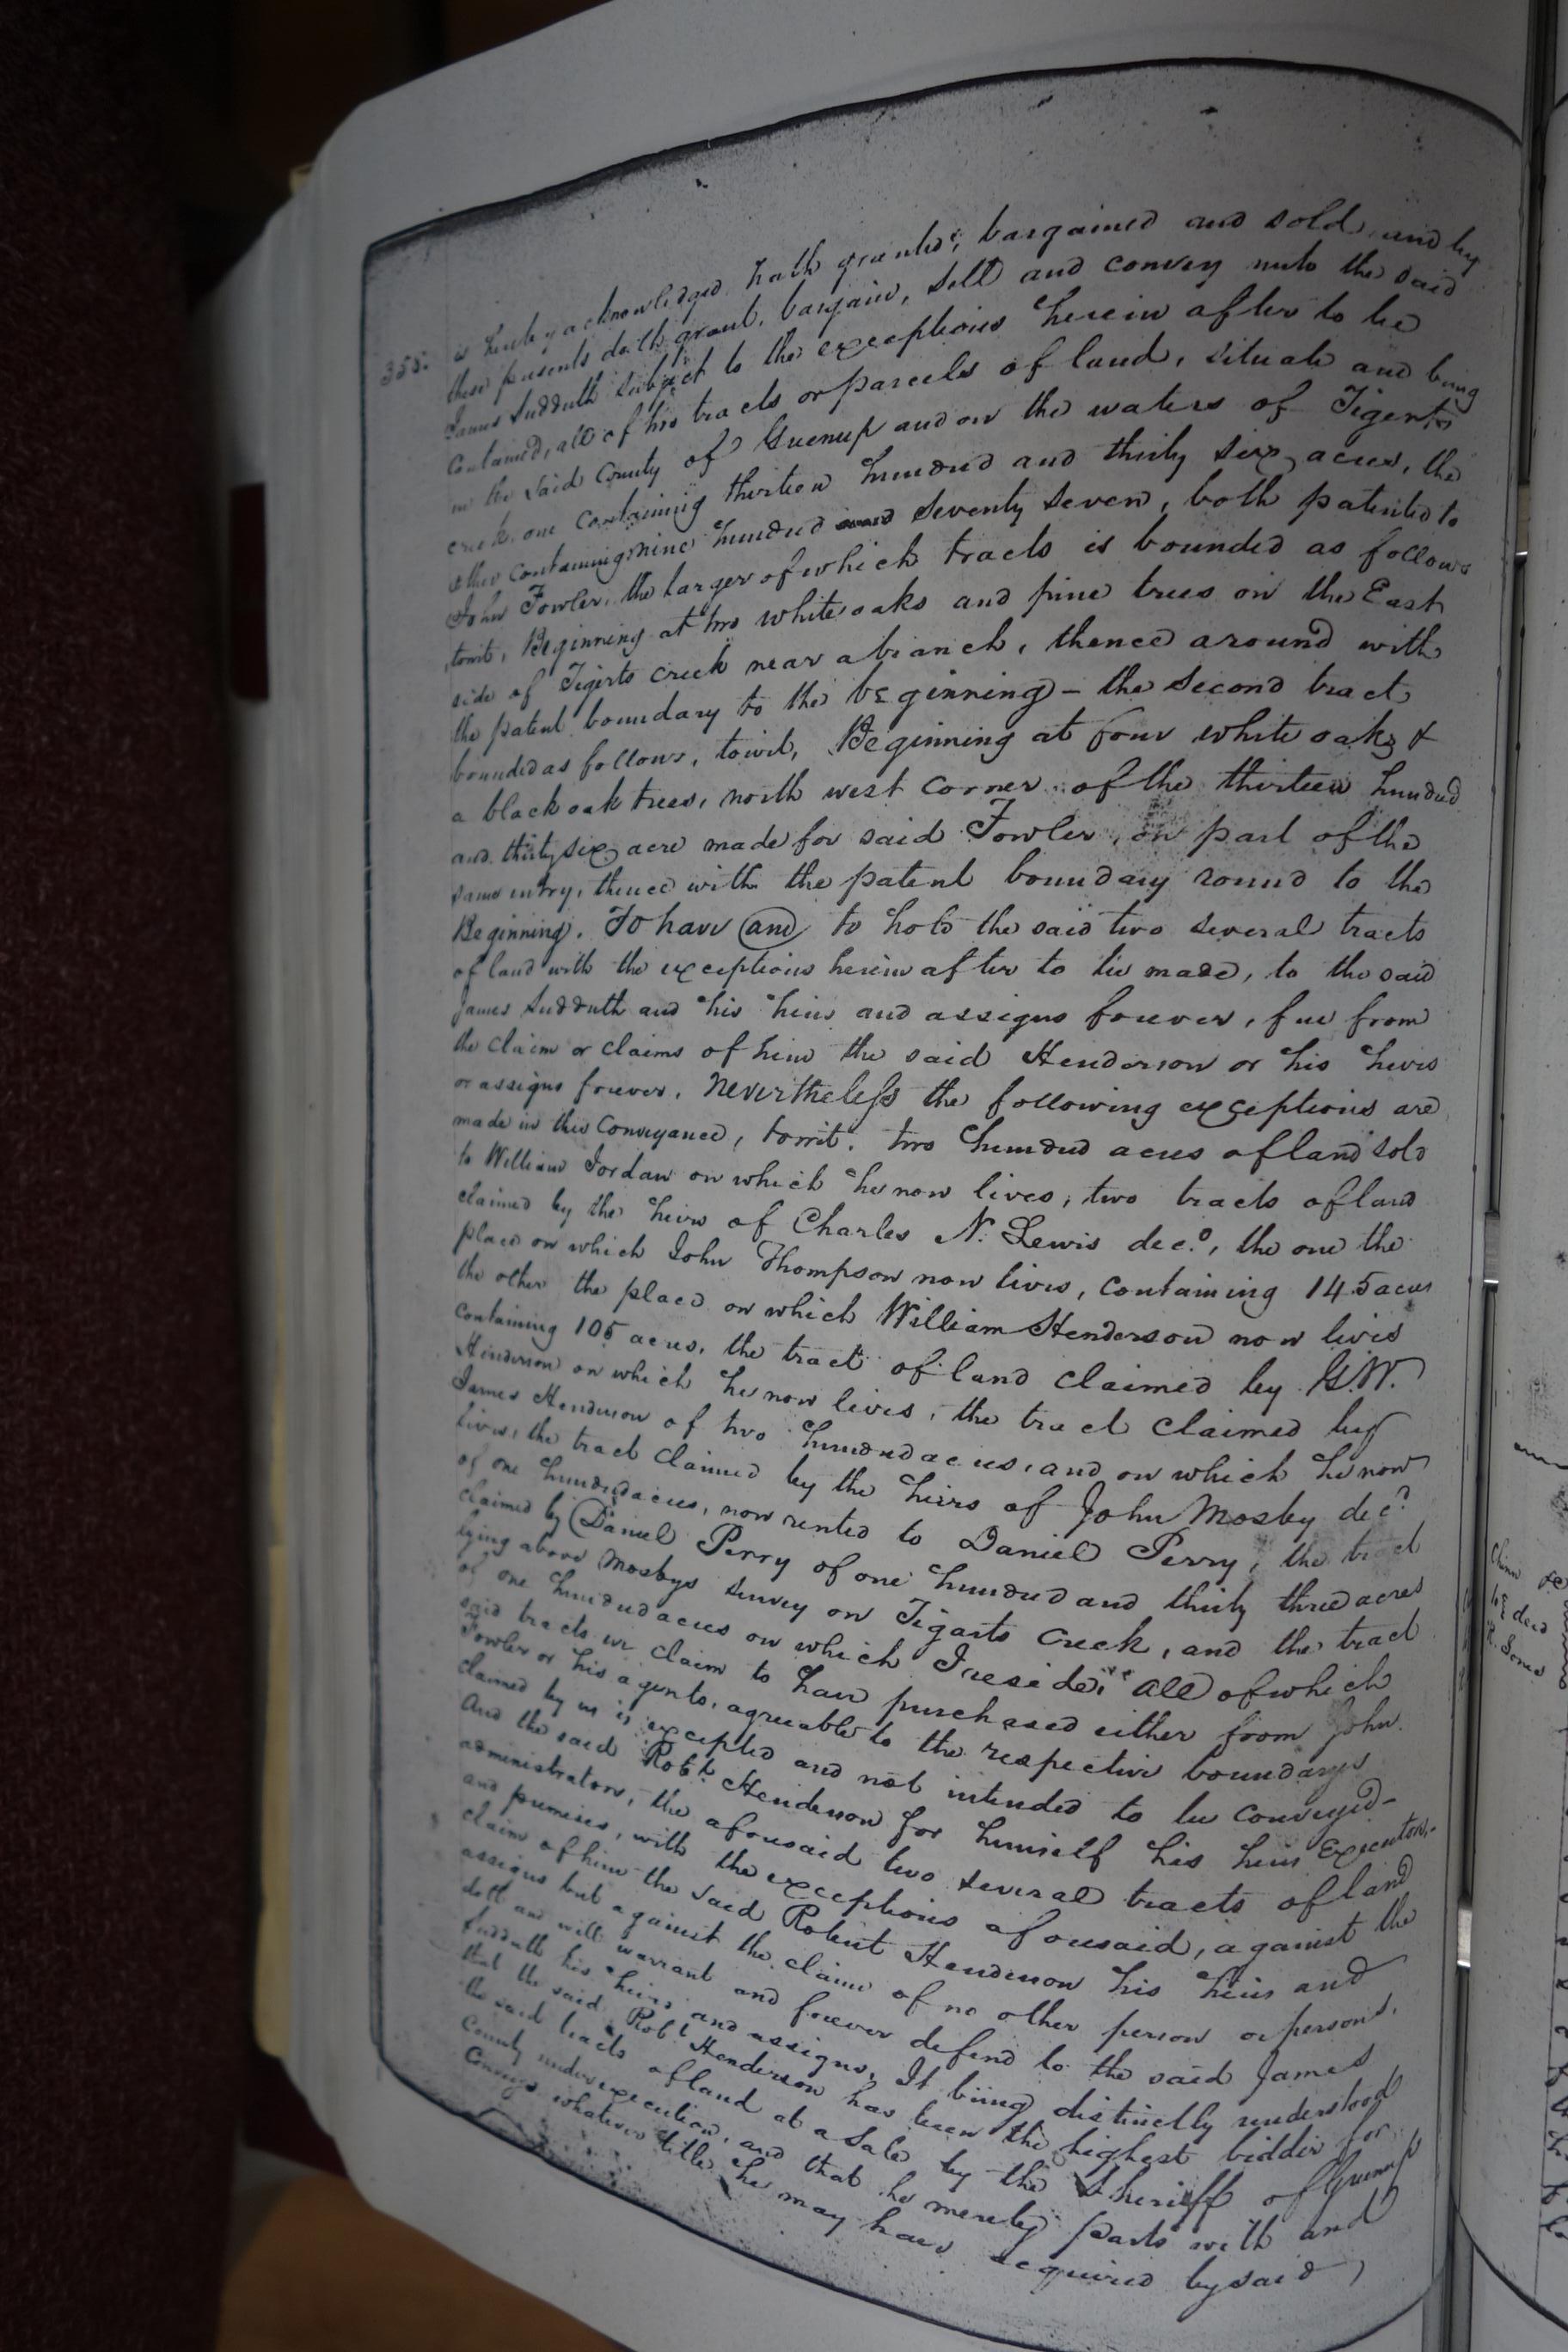 355.
is hereby acknowledged hath granted, bargained and sold, and by
these presents doth grant, bargain, sell and convey unto the said
James Sudduth subject to the exceptions herein after to be
Contained, all of his tracts or parcels of land, situate and being
in the said County of Greenup and on the waters of Tigerts
creek, one containing thirteen hundred and thirty six acres, the
other containing nine hundred and seventy seven, both patented to
John Fowler, the larger of which tracts is bounded as follows
towit, Beginning at two white oaks and pine trees on the East
side of Tigerts creek near a branch, thence around with
the patent boundary to the beginning - the second tract
bounded as follows, towit, Beginning at four white oaks &
a black oak trees, north west corner of the thirteen hundred
and thirty six acre made for said Fowler, on part of the
same entry, thence with the patent boundary round to the
Beginning. To have and to hold the said two several tracts
of land with the exceptions herein after to be made, to the said
James Sudduth and his heirs and assigns forever, free from
the claim or claims of him the said Henderson or his heirs
or assigns forever. Nevertheless the following exceptions are
made in this Conveyance, towit. two hundred acres of land sold
to William Jordan on which he now lives, two tracts of land
claimed by the heirs of Charles N. Lewis dec.d, the one the
place on which John Thompson now lives, containing 145 acres
the other the place on which William Henderson now lives
containing 105 acres, the tract of land claimed by G.W.
Henderson on which he now lives, the tract claimed by
James Henderson of two hundred acres, and on which he now
lives, the tract claimed by the heirs of John Mosby dec.d
of one hundred acres, now rented to Daniel Perry, the tract
claimed by Daniel Perry of one hundred and thirty three acres
lying above Mosbys survey on Tigarts Creek, and the tract
of one hundred acres on which I reside, all of which
said tracts we claim to have purchased either from John
Fowler or his agents, agreeable to the respective boundarys
claimed by us is excepted and not intended to be conveyed-
And the said Robt. Henderson for himself his heirs Executors,
administrators, the aforesaid two several tracts of land
and premises, with the exceptions aforesaid, against the
claim of him the said Robert Henderson his heirs and
assigns but against the claim of no other person or persons,
doth and will warrant and forever defend to the said James
Sudduth his heirs and assigns. It being distinctly understood
that the said Robt. Henderson has been the highest bidder for
the said tracts of land at a sale by the Sheriff of Greenup
County under execution, and that he merely parts with and
Conveys whatever title he may have acquired by said
Chinn
to & deed
R. Jones